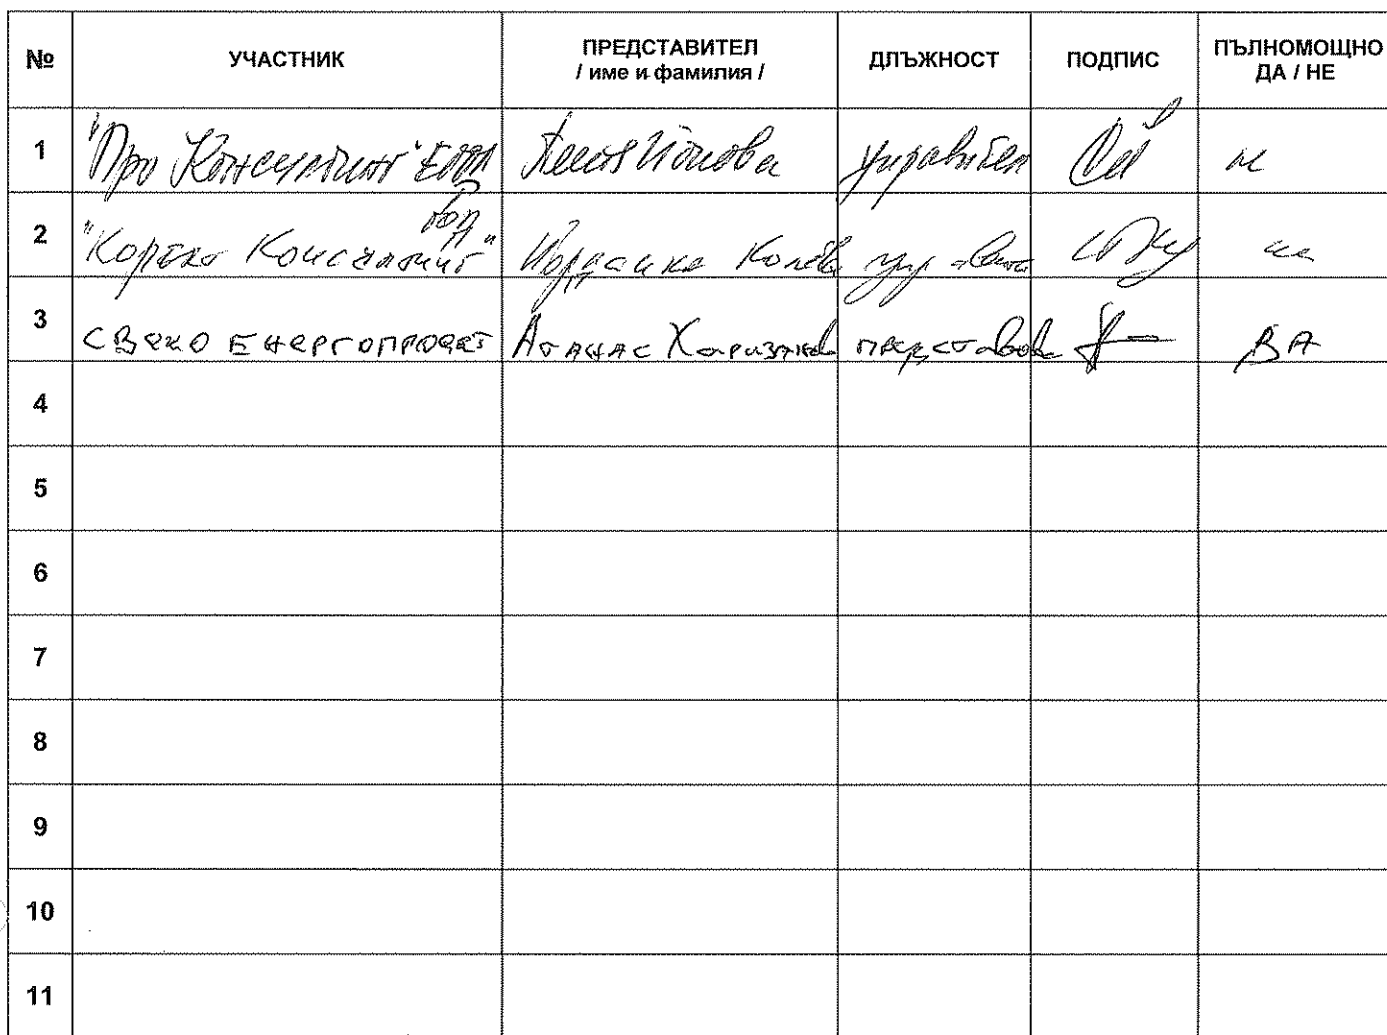 № УЧАСТНИК ПРЕДСТАВИТЕЛ / име и фамилия / ДЛЪЖНОСТ ПОДПИС ПЪЛНОМОЩНО ДА / НЕ
1 "Про Консултинг" ЕООД управител не
2 "Корект Консултинг" Йорданка Колева не
3 Свеко Енергопроект Атанас Харизанов ДА
4
5
6
7
8
9
10
11